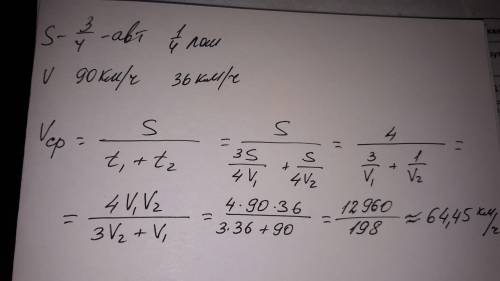 S - 3/4 - авт 1/4 лош
V 90 км/ч 36 км/ч
Vср = S / (t₁ + t₂) = S / (3S/4V₁ + S/4V₂) = 4 / (3/V₁ + 1/V₂) =
= 4V₁V₂ / (3V₂ + V₁) = 4·90·36 / (3·36+90) = 12960 / 198 ≈ 64,45 км/ч